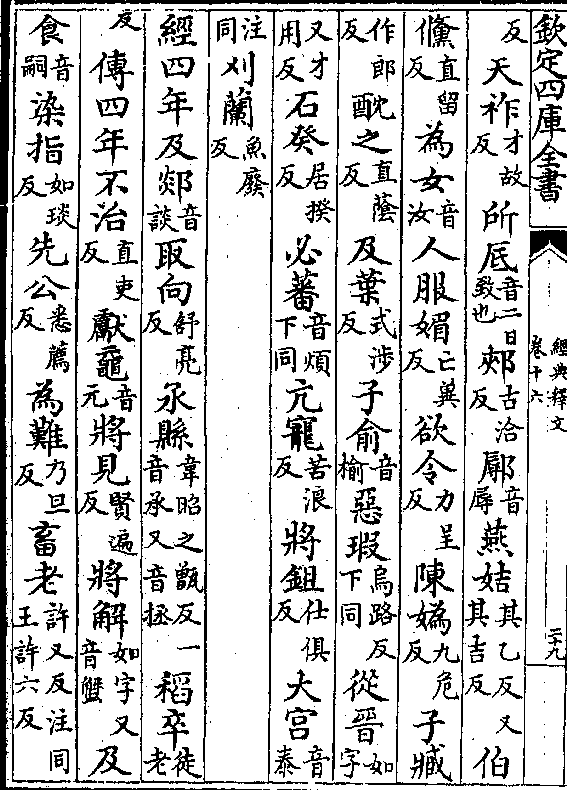 欽定四庫全書
經典釋文
卷十六
反天祚才故反所厎音二曰致也郟古洽反鄏音辱燕姞其乙反又其吉反伯
儵直留反為女音汝人服媚亡兾反欲令力呈反陳媯九危反子臧
作郎反酖之直蔭反及葉式涉反子俞音榆惡瑕烏路反下同從晉如字
又才用反石癸居揆反必蕃音煩下同亢寵苦浪反將鉏仕俱反大宫音泰
注同刈蘭魚廢反
經四年及郯音談取向舒亮反氶縣韋昭之甑反一音承又音拯稻卒徒老
反傳四年不治直吏反獻黿音元將見賢遍反將解如字又音蟹及
食音嗣染指如琰反先公悉薦反為難乃旦反畜老許又反注同王許六反